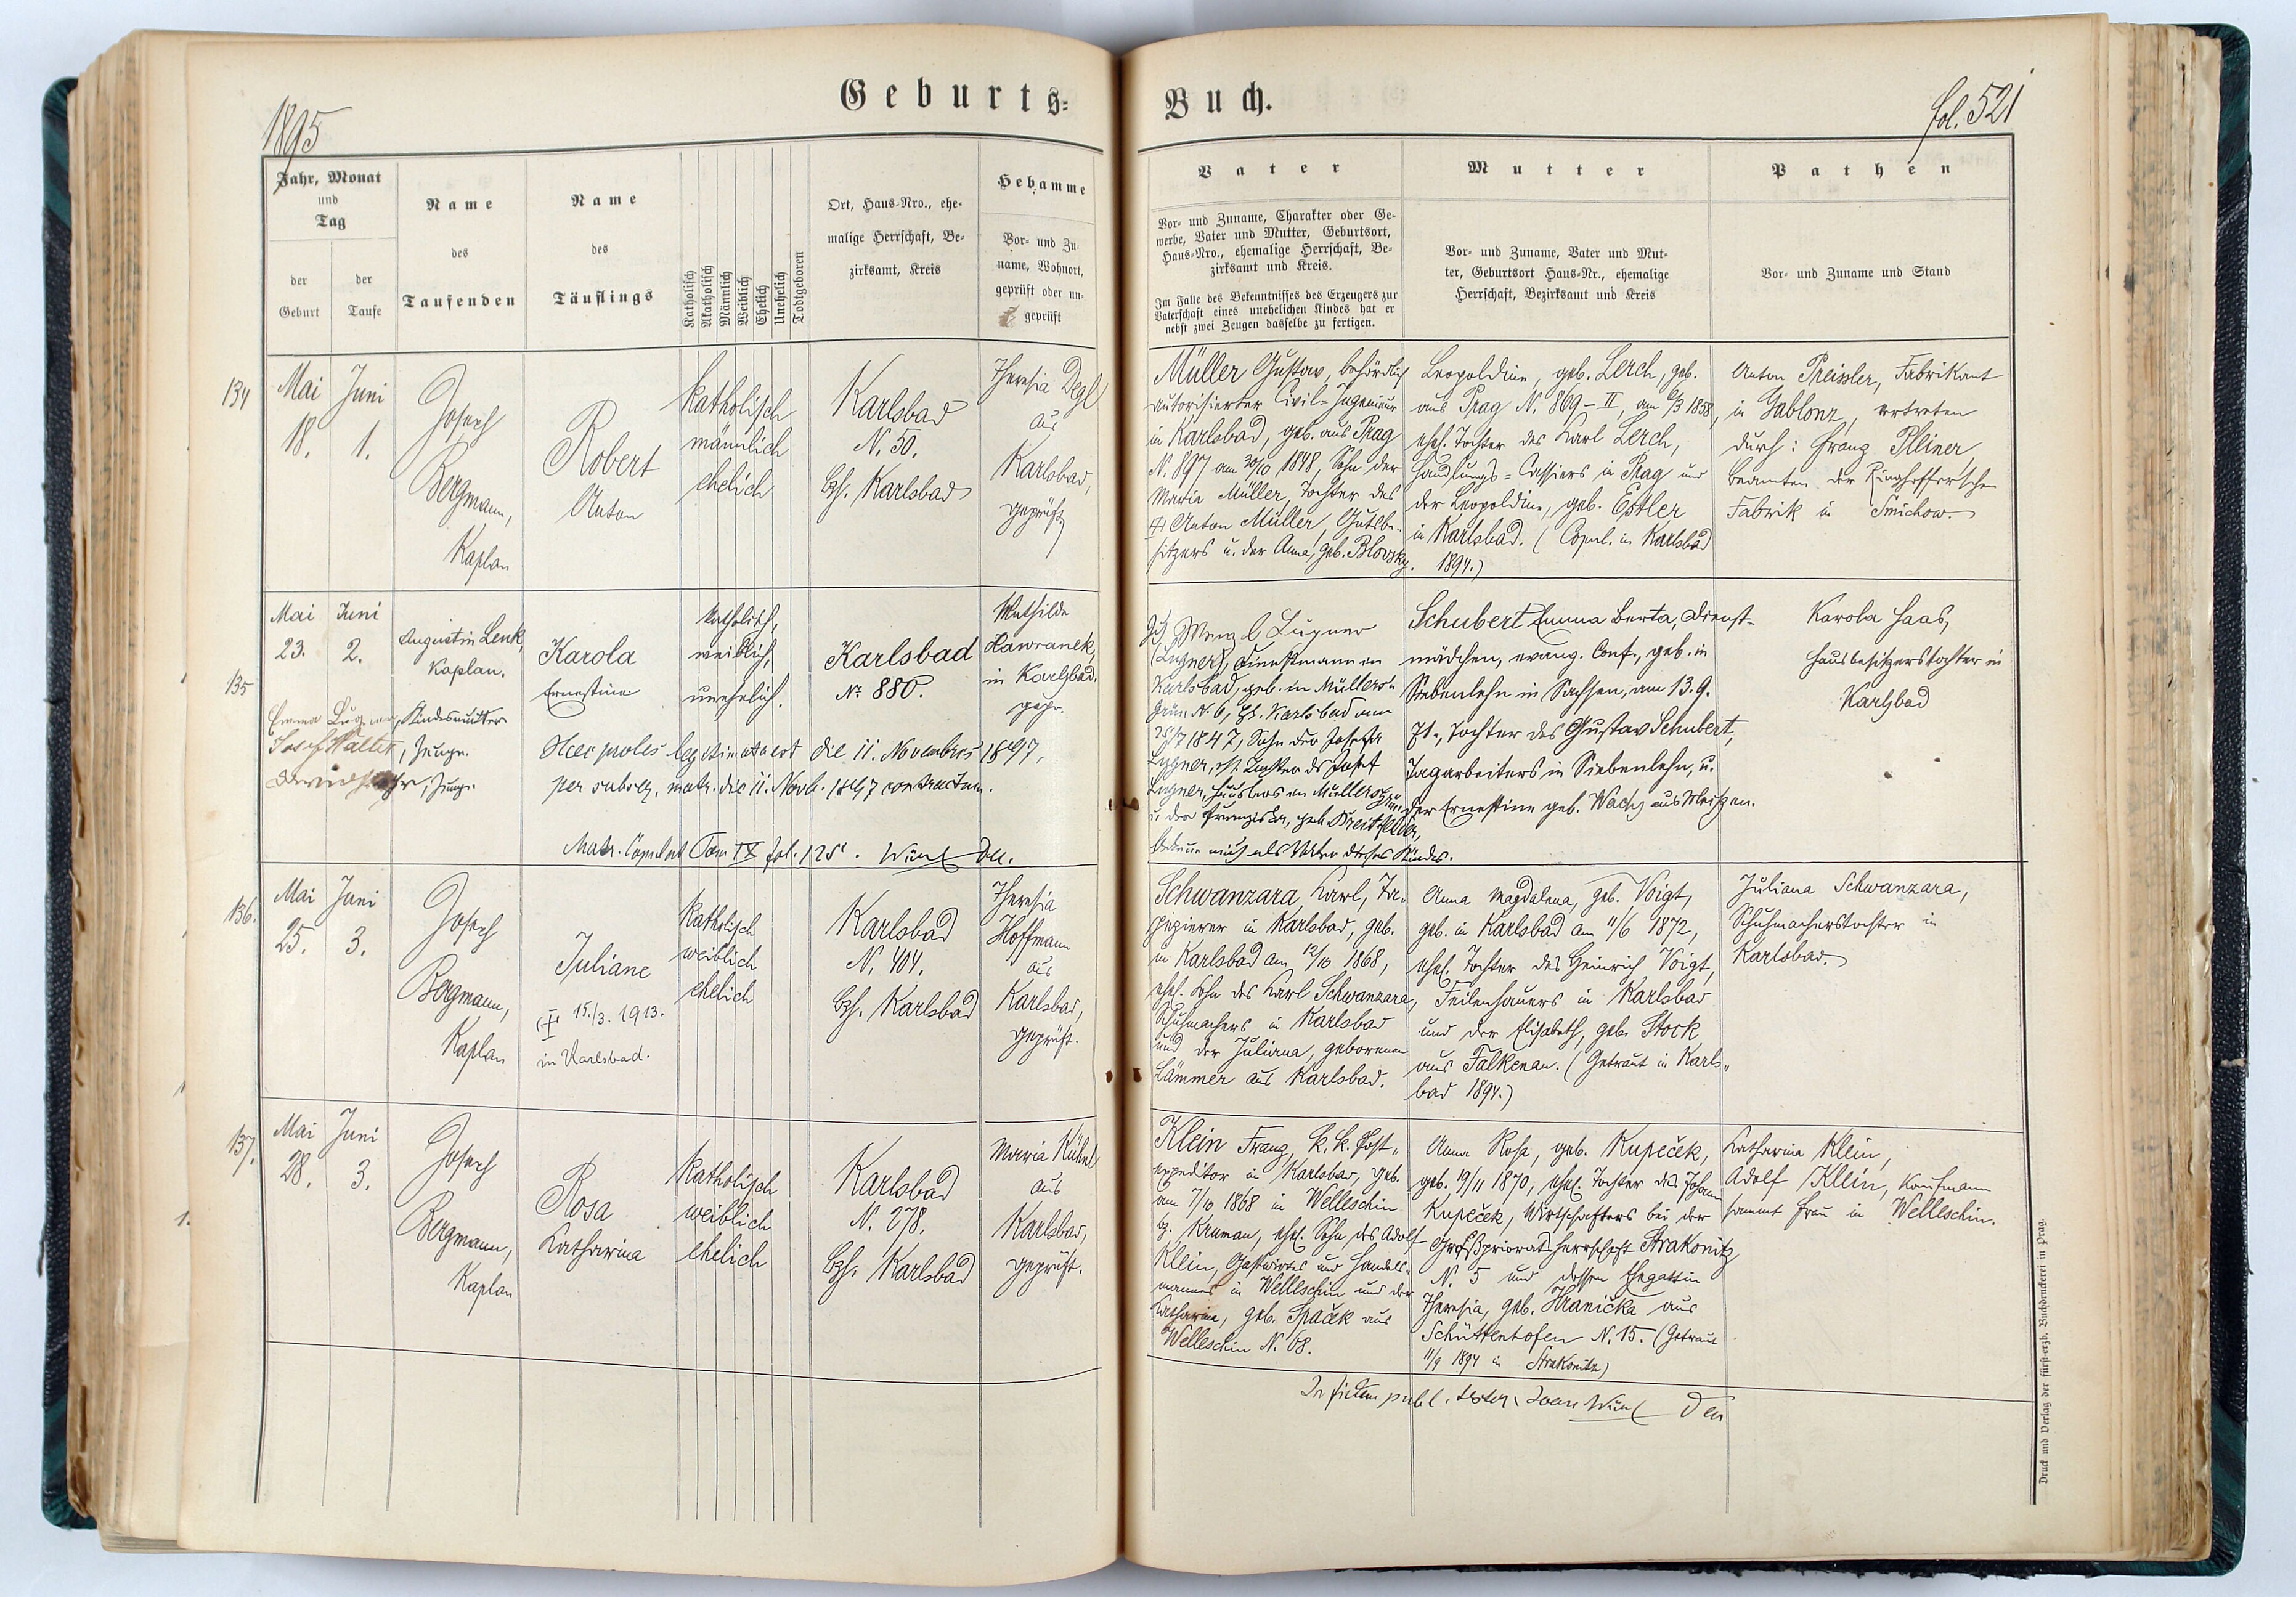 Geburts=
Buch.
1895
fol. 521
Jahr, Monat
und
Tag
der
Geburt
der
Taufe
Name
des
Taufenden
Name
des
Täuflings
Katholisch
Akatholisch
Männlich
Weiblich
Ehelich
Unehelich
Todtgeboren
Ort, Haus-Nro., ehe-
malige Herrschaft, Be-
zirksamt, Kreis
Hebamme
Vor- und Zu-
name, Wohnort,
geprüft oder un-
geprüft
Vater
Vor- und Zuname, Charakter oder Ge-
werbe, Vater und Mutter, Geburtsort,
Haus-Nro., ehemalige Herrschaft, Be-
zirksamt und Kreis.
Im Falle des Bekenntnisses des Erzeugers zur
Vaterschaft eines unehelichen Kindes hat er
nebst zwei Zeugen dasselbe zu fertigen.
Mutter
Vor- und Zuname, Vater und Mut-
ter, Geburtsort Haus-Nr., ehemalige
Herrschaft, Bezirksamt und Kreis
Pathen
Vor- und Zuname und Stand
134
Mai
18.
Juni
1.
Josef
Bergmann,
Kaplan
Robert
Anton
katholisch
männlich
ehelich
Karlsbad
N. 50.
Bzh. Karlsbad
Theresia Degl
aus
Karlsbad,
geprüft
Müller Gustav, behördlich
autorisierter Civil-Ingenieur
in Karlsbad, geb. aus Prag
N. 897 am 30/10 1848, Sohn der
Maria Müller, Tochter des
Anton Müller, Gutsbe-
sitzers u. der Anna, geb. Blovsky.
Leopoldine, geb. Lerch, geb.
aus Prag N. 869-II, am 6/3 1858,
ehel. Tochter des Karl Lerch,
Handlungs-Cassiers in Prag und
der Leopoldine, geb. Estler
in Karlsbad. (Copul. in Karlsbad
1894.)
Anton Preissler, Fabrikant
in Gablonz, vertreten
durch: Franz Pleiner,
Beamten der Ringhoffer'schen
Fabrik in Smichow.
135
Mai
23.
Juni
2.
Augustin Lenk,
Kaplan.
Karola
Ernestine
katholisch,
weiblich,
unehelich.
Karlsbad
No. 880.
Mathilde
Hawranek,
in Karlsbad.
gepr.
Emma Lugner, Kindesmutter
Josef Walter, Zeuge.
Zeuge.
Haec proles legitimata est die 11. Novembris 1897,
per subseq. matr. die 11. Novb. 1897 contractum.
Matr. Copulat Tom IX fol. 125.
Wenzl Lugner
(Lugner), Dienstmann in
Karlsbad, geb. in Müllers-
grün N. 6, Bz. Karlsbad am
1847, Sohn der Josefa
Lugner, Tochter ds Josef
Lugner, Hausbes. in Müllersgrün,
u. der Franziska, geb. Kreitzfelder,
bekenne mich als Vater dieses Kindes.
Schubert Emma Berta, Dienst-
mädchen, evang. Conf., geb. in
Siebenlehn in Sachsen, am 13. 9.
71., Tochter des Gustav Schubert,
Tagarbeiters in Siebenlehn, u.
der Ernestine geb. Wachs aus Meißen.
Karola Haas,
Hausbesitzerstochter in
Karlsbad
136.
Mai
25.
Juni
3.
Josef
Bergmann,
Kaplan
Juliane
15./3. 1913.
in Karlsbad.
katholisch
weiblich
ehelich
Karlsbad
N. 404.
Bzh. Karlsbad
Theresia
Hoffmann
aus
Karlsbad,
geprüft.
Schwanzara, Karl, Ta-
pezierer in Karlsbad, geb.
in Karlsbad am 12/10 1868,
ehel. Sohn des Karl Schwanzara,
Schuhmachers in Karlsbad
und der Juliana, geborenen
Lämmer aus Karlsbad.
Anna Magdalena, geb. Voigt,
geb. in Karlsbad am 11/6 1872,
ehel. Tochter des Heinrich Voigt,
Feilenhauers in Karlsbad
und der Elisabeth, geb. Stock
aus Falkenau. (Getraut in Karls-
bad 1894.)
Juliana Schwanzara,
Schuhmacherstochter in
Karlsbad.
137.
Mai
28.
Juni
3.
Josef
Bergmann,
Kaplan
Rosa
Katharina
katholisch
weiblich
ehelich
Karlsbad
N. 278.
Bzh. Karlsbad
Maria Kühnl
aus
Karlsbad,
geprüft.
Klein Franz, k. k. Post-
expeditor in Karlsbad, geb.
am 7/10 1868 in Welleschin
bz. Krumau, ehel. Sohn des Adolf
Klein, Gastwirtes und Handels-
mannes in Welleschin und der
Katharina, geb. Spaček aus
Welleschin N. 68.
Anna Rosa, geb. Kupeček,
geb. 19/11 1870, ehel. Tochter des Johann
Kupeček, Wirtschafters bei der
Großprioratsherrschaft Strakonitz
N. 5 und dessen Ehegattin
Theresia, geb. Hranička aus
Schüttenhofen N. 15. (Getraut
11/9 1894 in Strakonitz)
Katharina Klein,
Adolf Klein, Kaufmann
sammt Frau in Welleschin.
In fidem publ.
Druck und Verlag der fürst-erzb. Buchdruckerei in Prag.